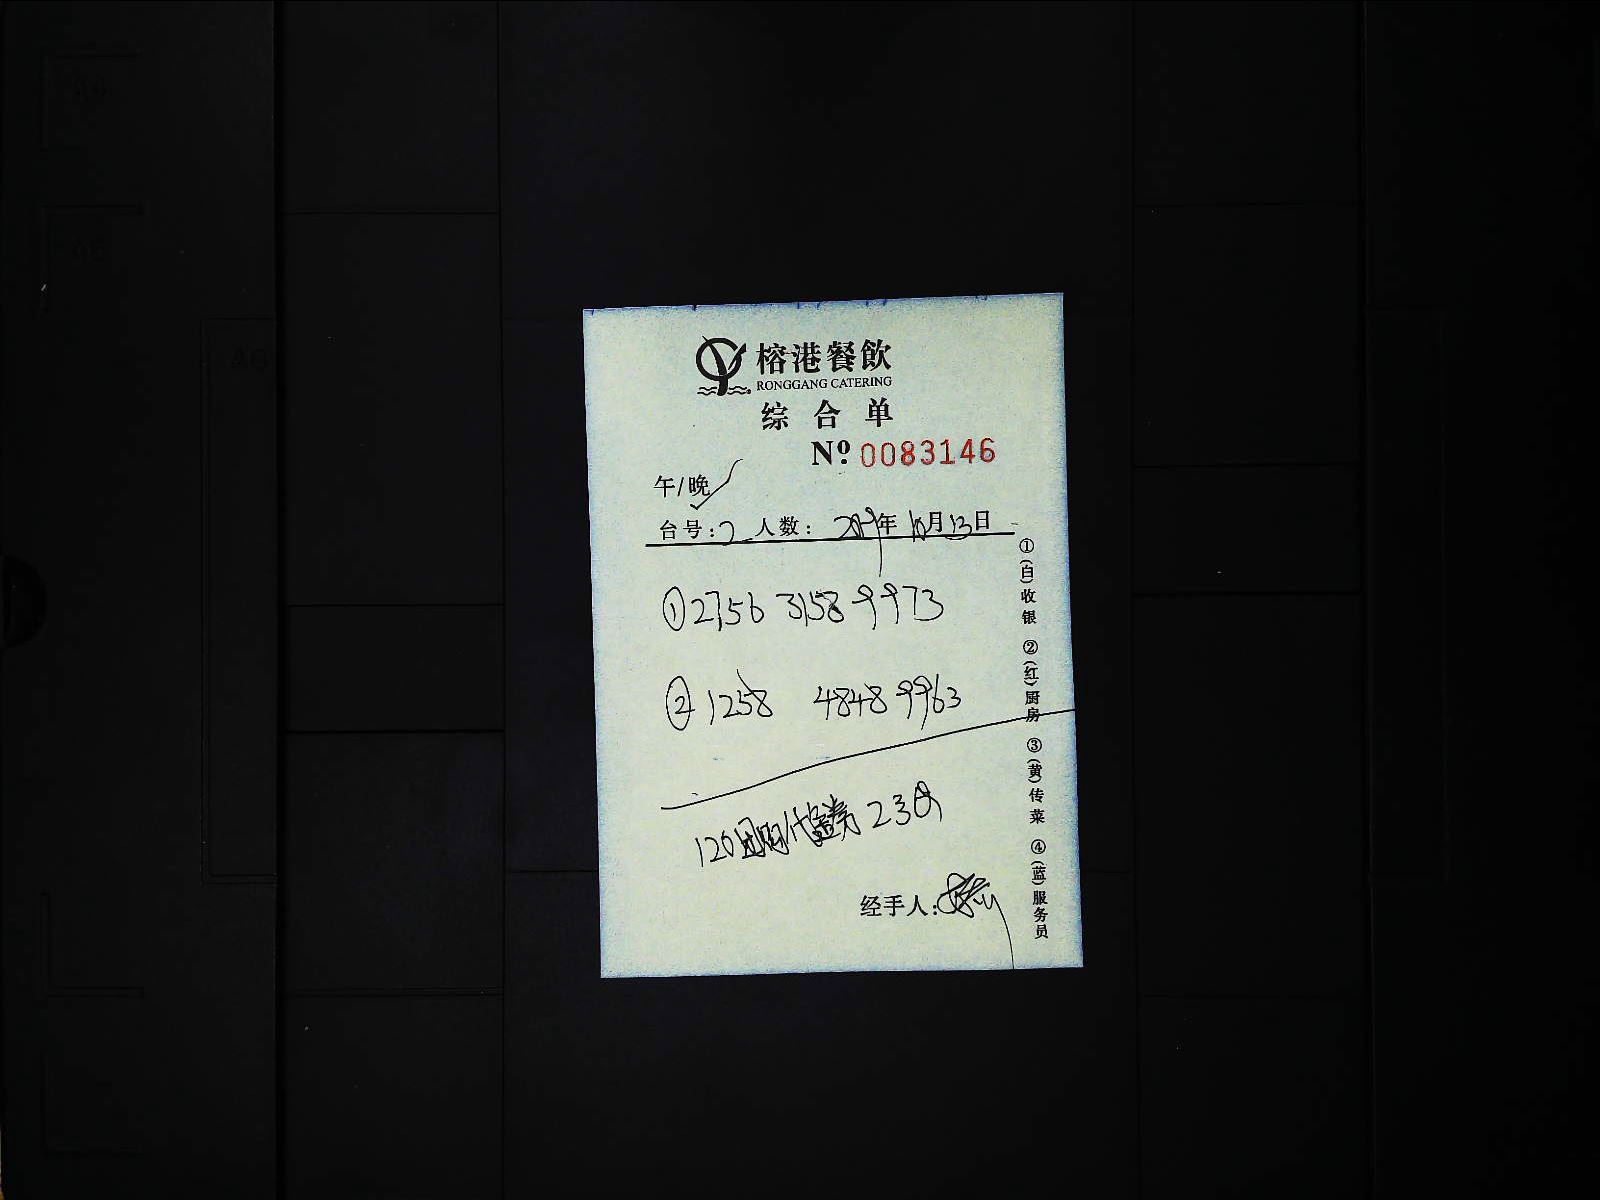 榕港餐飲
RONGGANG CATERING
综合单
Nº 0083146
午/晚✓
台号:2 人数: 2019年10月13日
①2756 3158 9973
②1258 4848 9963
120团购代金券 230
经手人:
①(白)收银 ②(红)厨房 ③(黄)传菜 ④(蓝)服务员
A4
A5
A6